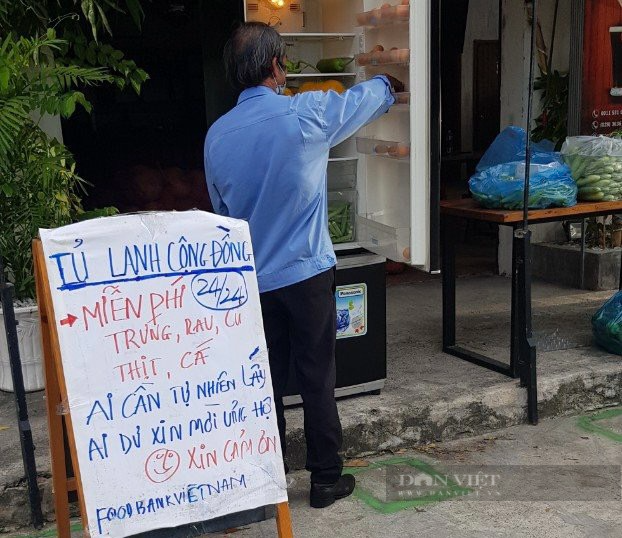 TỦ LẠNH CỘNG ĐỒNG
MIỄN PHÍ 24/24
TRỨNG, RAU, CỦ
THỊT, CÁ
AI CẦN TỰ NHIÊN LẤY
AI DƯ XIN MỜI ỦNG HỘ
XIN CẢM ƠN
FOODBANKVIETNAM
Panasonic
DÂN VIỆT